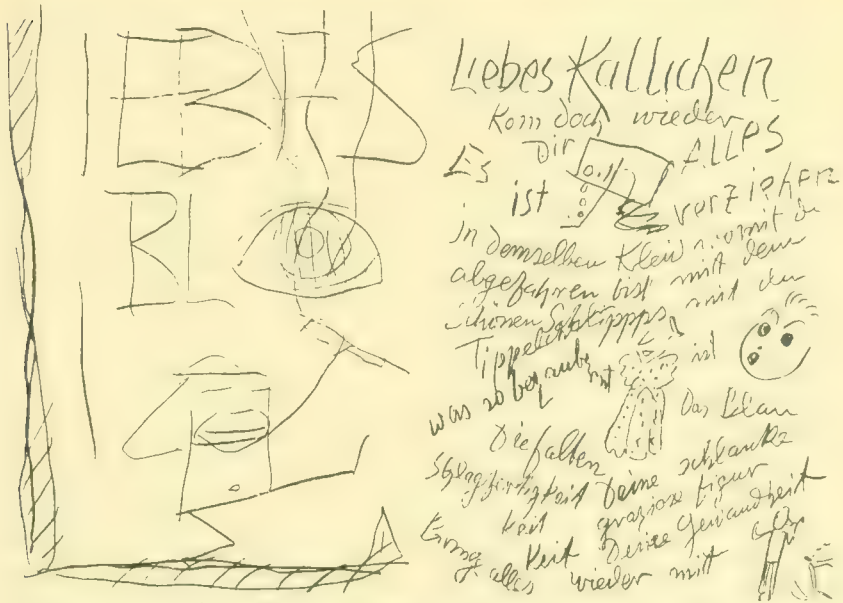 LIEBES
BL
Liebes Kallichen
Kom doch wieder
Es Dir ALLES
ist verziehen
in demselben Kleid womit du
abgefahren bist mit dem
schönen Schlippps mit den
Tippelchen ist
was so bezaubernt
Das Blau
Die falten
Schlagfertigkeit Deine schlanke
keit graziöse figur
keit Deine Gewandheit
alles wieder mit